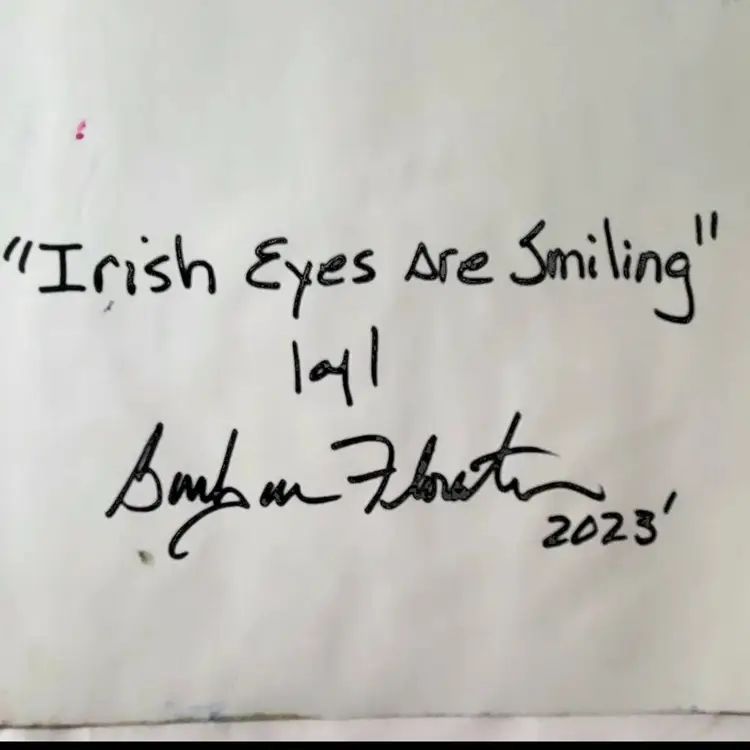 "Irish Eyes Are Smiling"
1 of 1
2023'